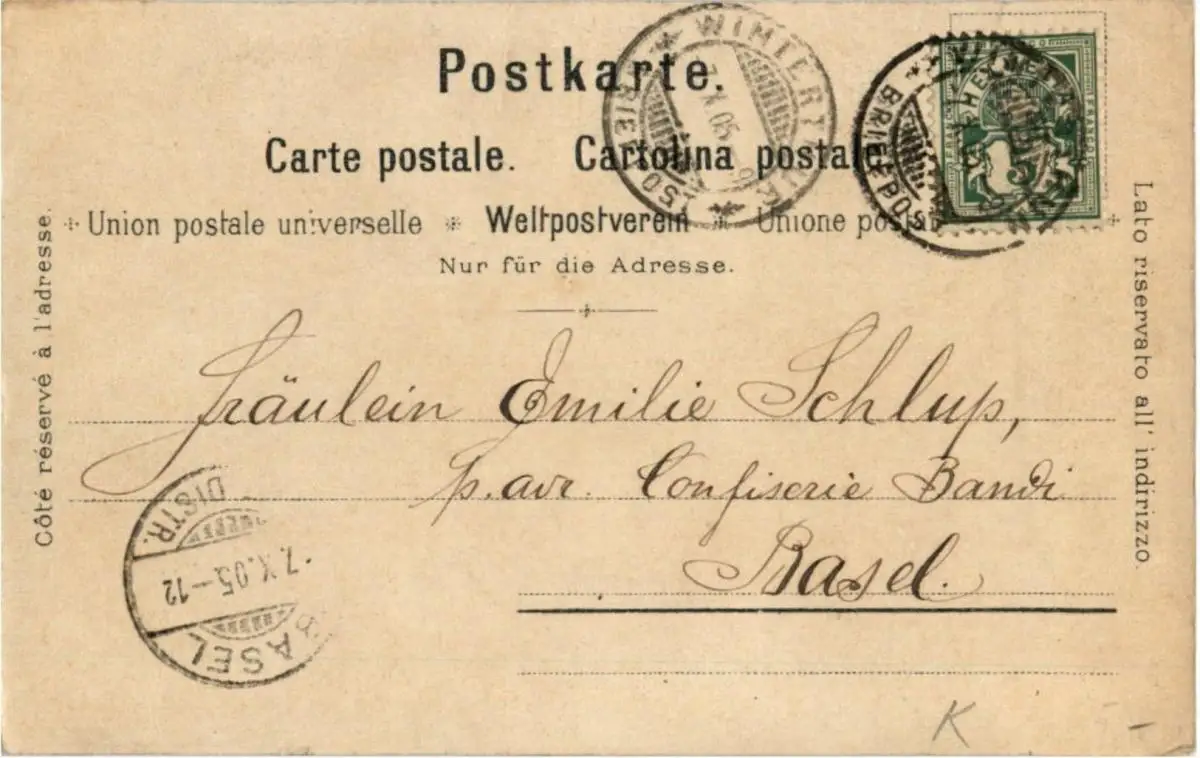 Postkarte.
Carte postale. Cartolina postale
Union postale universelle * Weltpostverein * Unione postale
Nur für die Adresse.
Côté réservé à l'adresse.
Lato riservato all' indirizzo
WINTERTHUR
BRIEFPOST
X.05
BRIEFPOST
HELVETIA
5
Fräulein Emilie Schlup,
p. adr. Confiserie Bandi
Basel.
BASEL
7.X.05.-12
DISTR.
K